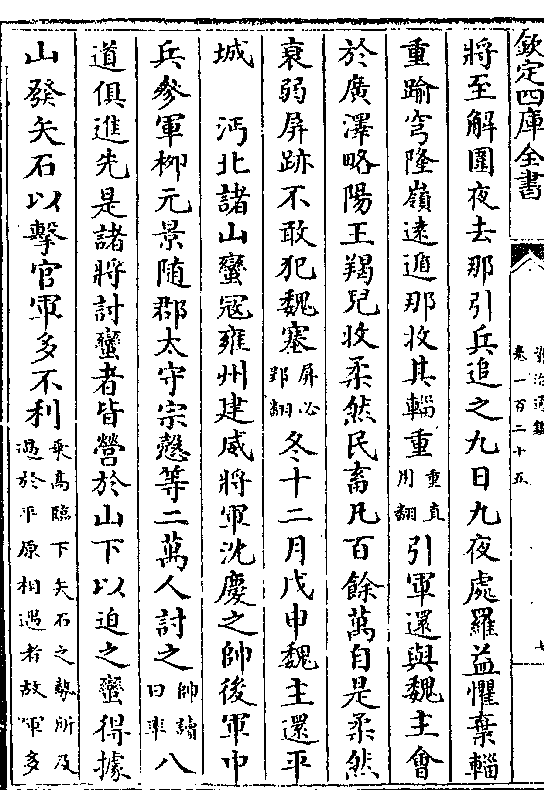 欽定四庫全書
卷一百二十五
將至解圍夜去那引兵追之九日九夜處羅益懼棄輜
重踰穹隆嶺遠遁那收其輜重重直用翻引軍還與魏主會
於廣澤略陽王羯兒收柔然民畜凡百餘萬自是柔然
衰弱屏跡不敢犯魏塞屏必郢翻冬十二月戊申魏主還平
城 沔北諸山蠻寇雍州建威將軍沈慶之帥後軍中
兵參軍柳元景隨郡太守宗慤等二萬人討之帥讀曰率八
道俱進先是諸將討蠻者皆營於山下以迫之蠻得據
山發矢石以擊官軍多不利乘高臨下矢石之勢所及過於平原相遇者故軍多